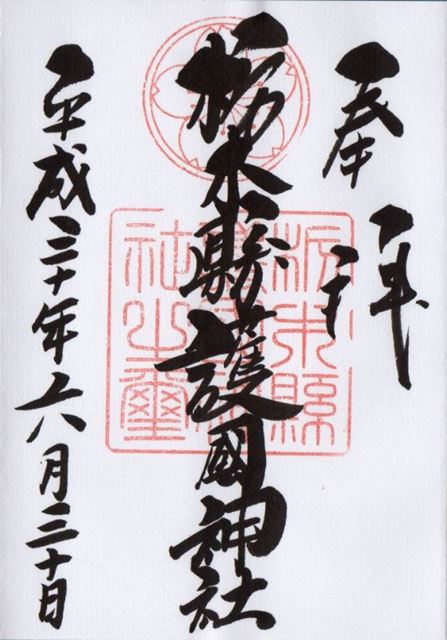 奉拝
栃木縣護國神社
平成三十年六月三十日
栃木縣
社之璽